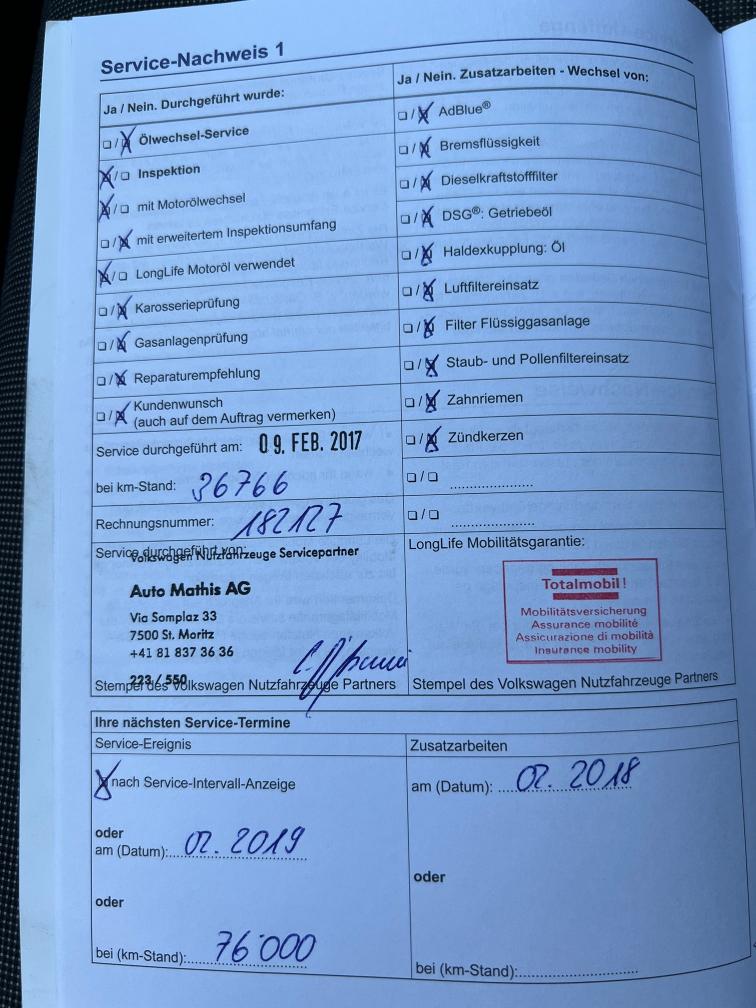 Service-Nachweis 1
Ja / Nein. Durchgeführt wurde:
☐/☒ Ölwechsel-Service
☒/☐ Inspektion
☒/☐ mit Motorölwechsel
☐/☒ mit erweitertem Inspektionsumfang
☒/☐ LongLife Motoröl verwendet
☐/☒ Karosserieprüfung
☐/☒ Gasanlagenprüfung
☐/☒ Reparaturempfehlung
☐/☒ Kundenwunsch
(auch auf dem Auftrag vermerken)
Service durchgeführt am: 09. FEB. 2017
bei km-Stand: 36766
Rechnungsnummer: 182127
Service durchgeführt von:
Volkswagen Nutzfahrzeuge Servicepartner
Auto Mathis AG
Via Somplaz 33
7500 St. Moritz
+41 81 837 36 36
223 / 550
Stempel des Volkswagen Nutzfahrzeuge Partners
Ja / Nein. Zusatzarbeiten - Wechsel von:
☐/☒ AdBlue®
☐/☒ Bremsflüssigkeit
☐/☒ Dieselkraftstofffilter
☐/☒ DSG®: Getriebeöl
☐/☒ Haldexkupplung: Öl
☐/☒ Luftfiltereinsatz
☐/☒ Filter Flüssiggasanlage
☐/☒ Staub- und Pollenfiltereinsatz
☐/☒ Zahnriemen
☐/☒ Zündkerzen
☐/☐ ....................
☐/☐ ....................
LongLife Mobilitätsgarantie:
Totalmobil!
Mobilitätsversicherung
Assurance mobilité
Assicurazione di mobilità
Insurance mobility
Stempel des Volkswagen Nutzfahrzeuge Partners
Ihre nächsten Service-Termine
Service-Ereignis
☒ nach Service-Intervall-Anzeige
oder
am (Datum): 02. 2019
oder
bei (km-Stand): 76'000
Zusatzarbeiten
am (Datum): 02. 2018
oder
bei (km-Stand):